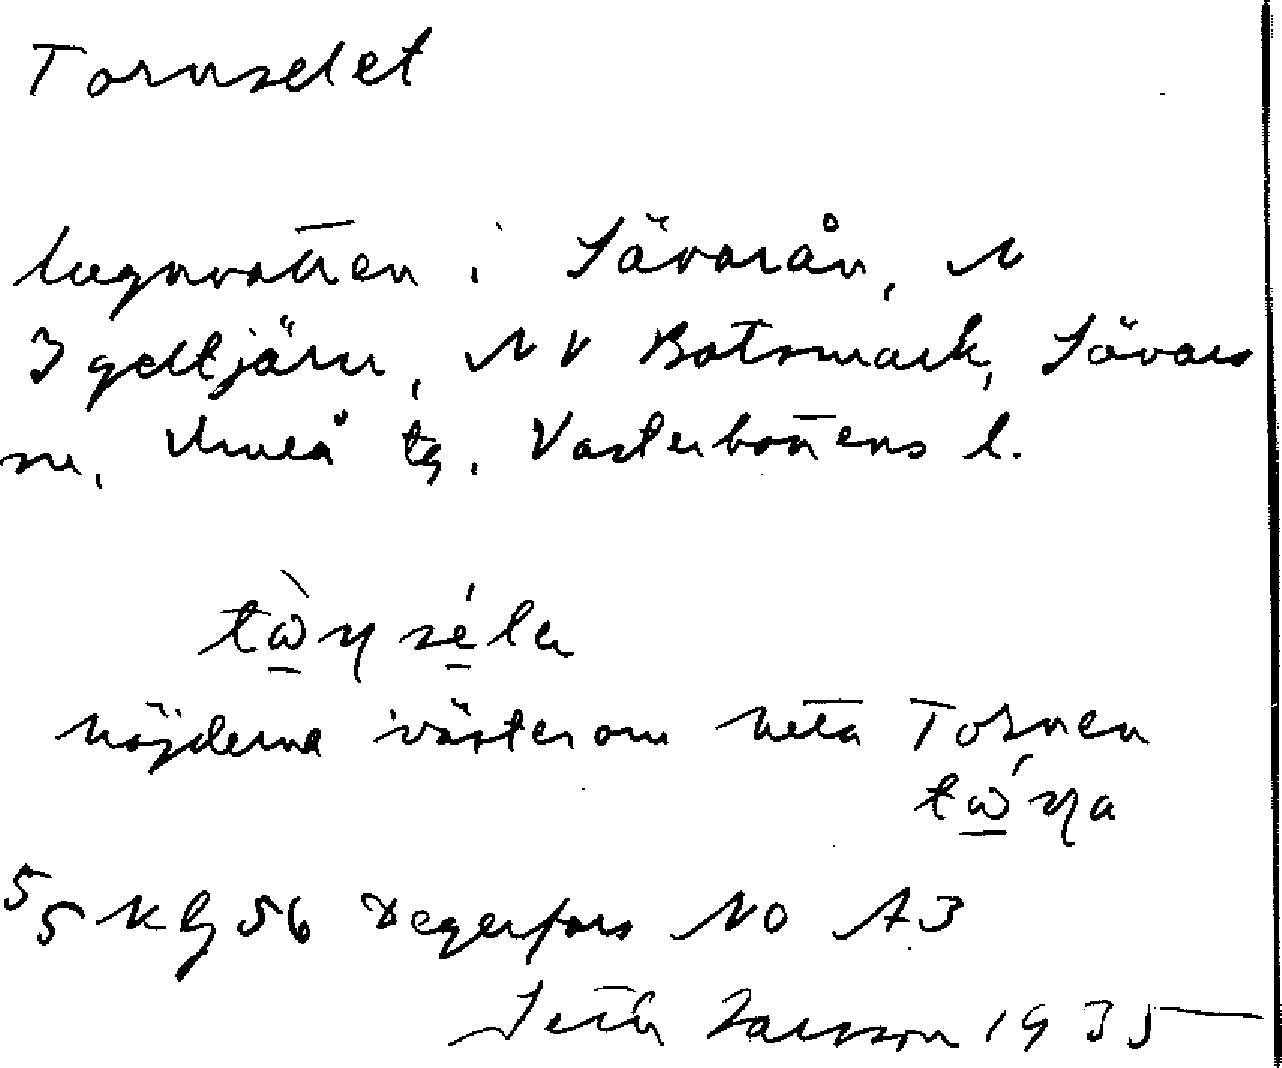 Tornselet
lugnvatten i Sävarån, N
Igeltjärn, NV Botsmark, Sävars
sn, Umeå tg. Västerbottens l.
höjderna väster om heta Tornen
55 K bg 56 Degerfors NO A3
Larsson 1935